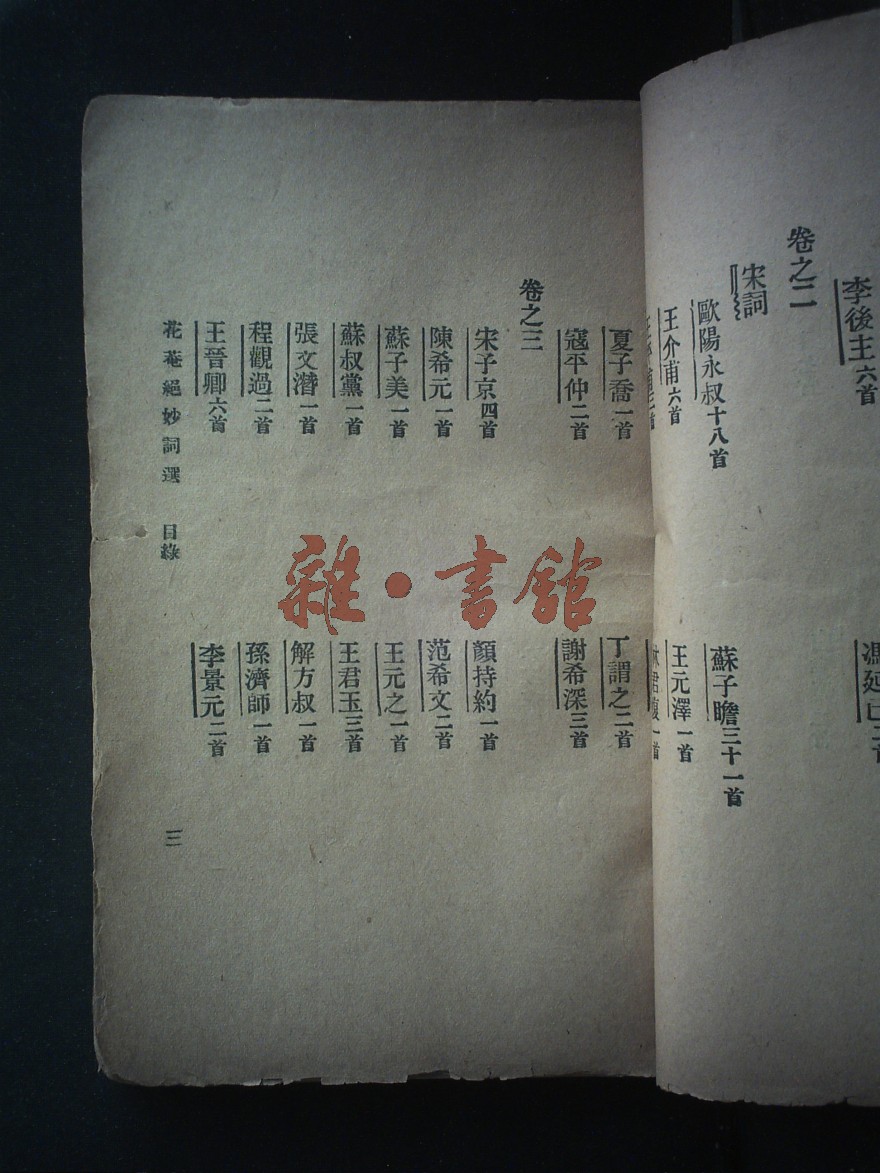 李後主六首
馮延巳
卷之二
宋詞
歐陽永叔十八首
蘇子瞻三十一首
王介甫六首
王元澤一首
一首
一首
夏子喬一首
丁謂之二首
寇平仲二首
謝希深三首
卷之三
宋子京四首
顏持約一首
陳希元一首
范希文二首
蘇子美一首
王元之一首
蘇叔黨一首
王君玉三首
張文潛一首
解方叔一首
程觀過二首
孫濟師一首
王晉卿六首
李景元二首
花菴絕妙詞選 目錄
三
雜·書館